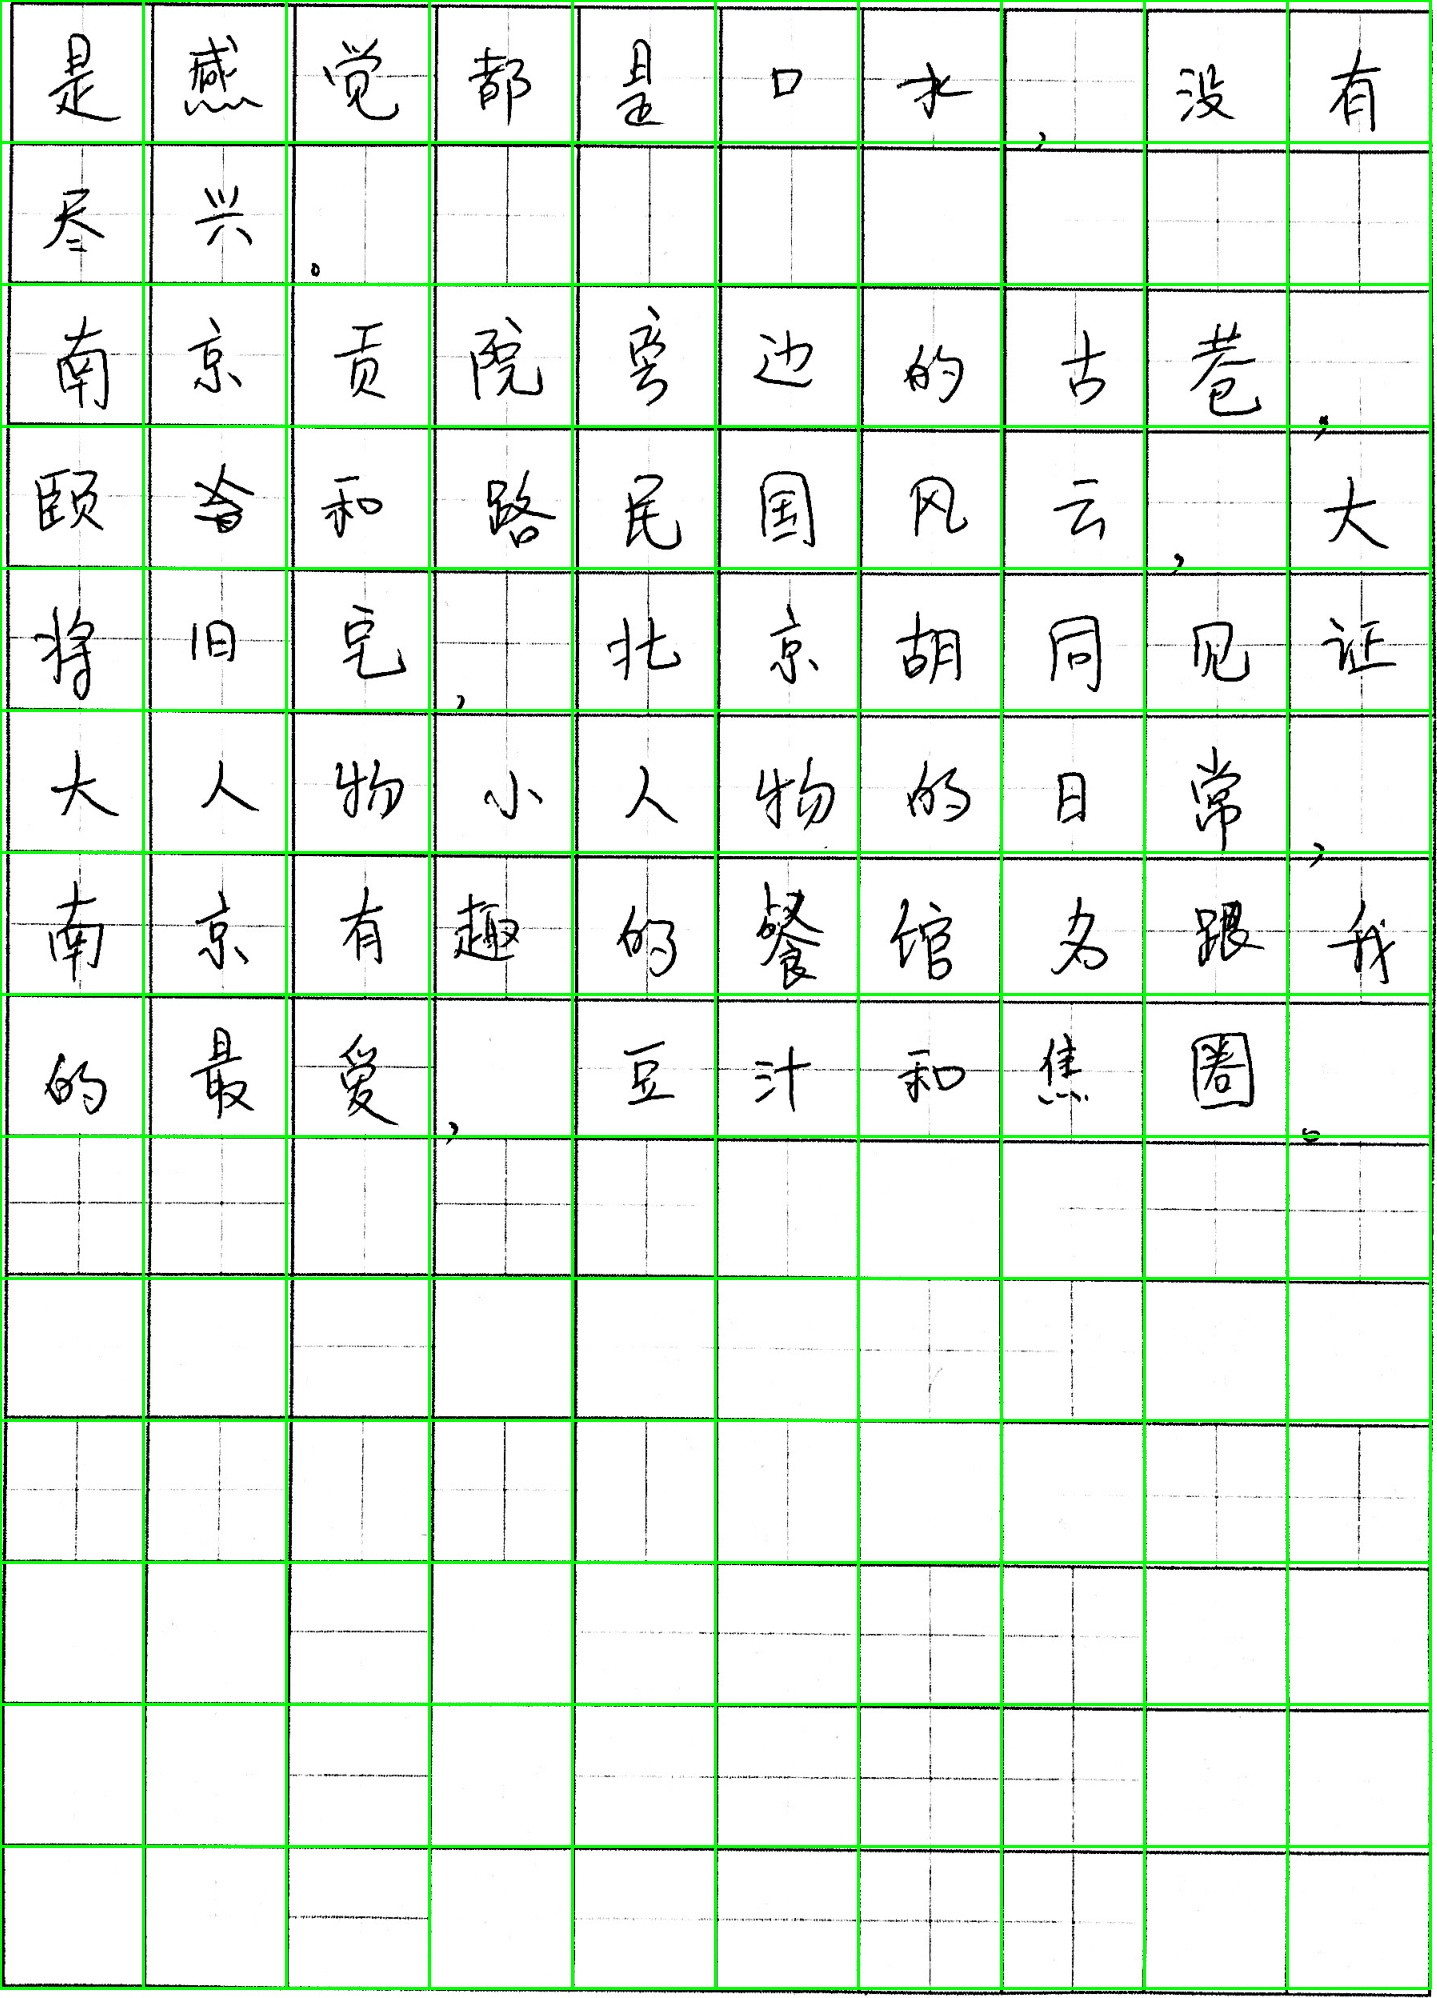 是感觉都是口水，没有
尽兴。
南京贡院旁边的古巷，
颐和路民国风云，大
将旧宅，北京胡同见证
大人物小人物的日常，
南京有趣的餐馆名跟我
的最爱，豆汁和焦圈。